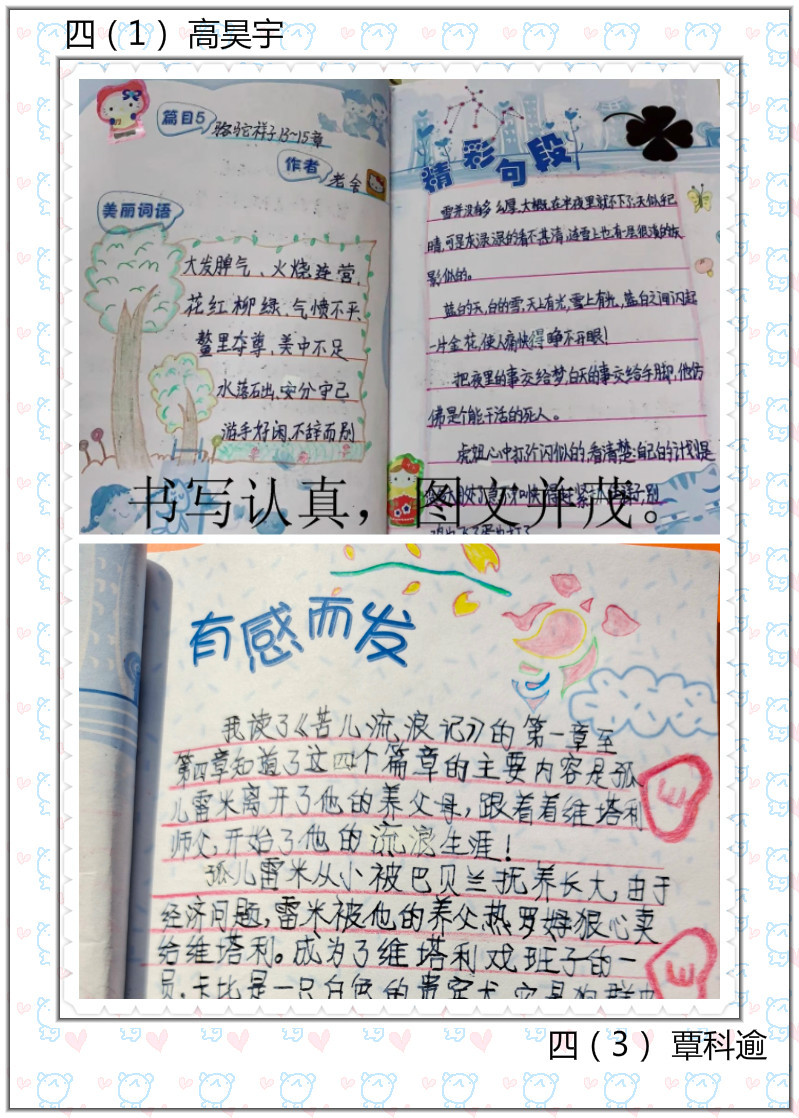 四（1） 高昊宇
篇目5
骆驼祥子13~15章
作者
老舍
美丽词语
大发脾气、火烧连营、
花红柳绿、气愤不平、
鳌里夺尊、美中不足
水落石出、安分守己
游手好闲、不辞而别
精彩句段
雪并没有多么厚,大概在半夜里就不下了,天似乎已
晴,可是灰渌渌的看不甚清,连雪上也有一层很淡的灰
影似的。
蓝白的天,白的雪,天上有光,雪上有光,蓝白之间闪起
一片金花,使人痛快得睁不开眼!
把夜里的事交给梦,白天的事交给手脚,他仿
佛是个能干活的死人。
虎妞心中打了个闪似的,看清楚:自己的计划是
书写认真，图文并茂。
有感而发
我读了《苦儿流浪记》的第一章至
第四章知道了这四个篇章的主要内容是孤
儿雷米离开了他的养父母,跟着着维塔利
师父,开始了他的流浪生涯!
孤儿雷米从小被巴贝兰抚养长大,由于
经济问题,雷米被他的养父热罗姆狠心卖
给维塔利。成为了维塔利戏班子的一
员,卡比是一只白色的贵宾犬,它是狗群中
四（3） 覃科逾